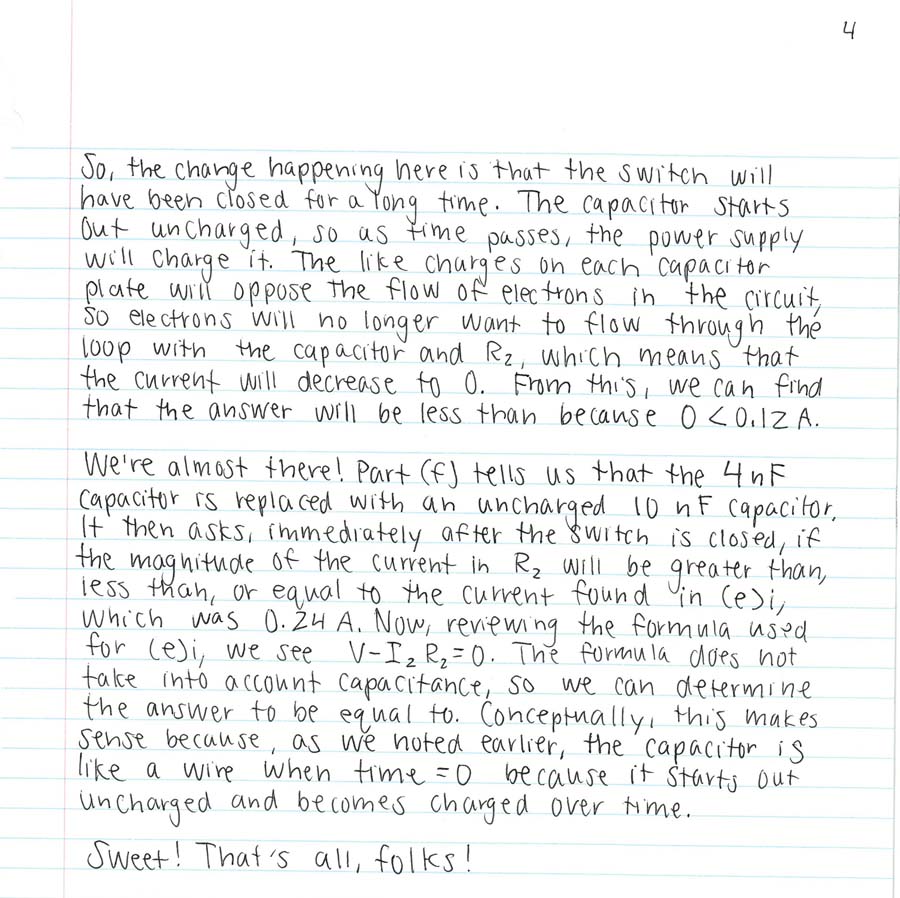 4
So, the change happening here is that the switch will
have been closed for a long time. The capacitor starts
out uncharged, so as time passes, the power supply
will charge it. The like charges on each capacitor
plate will oppose the flow of electrons in the circuit,
so electrons will no longer want to flow through the
loop with the capacitor and R₂, which means that
the current will decrease to 0. From this, we can find
that the answer will be less than because 0 < 0.12 A.
We're almost there! Part (f) tells us that the 4 nF
capacitor is replaced with an uncharged 10 nF capacitor.
It then asks, immediately after the switch is closed, if
the magnitude of the current in R₂ will be greater than,
less than, or equal to the current found in (e)i,
which was 0.24 A. Now, reviewing the formula used
for (e)i, we see V-I₂R₂=0. The formula does not
take into account capacitance, so we can determine
the answer to be equal to. Conceptually, this makes
sense because, as we noted earlier, the capacitor is
like a wire when time = 0 because it starts out
uncharged and becomes charged over time.
Sweet! That's all, folks!